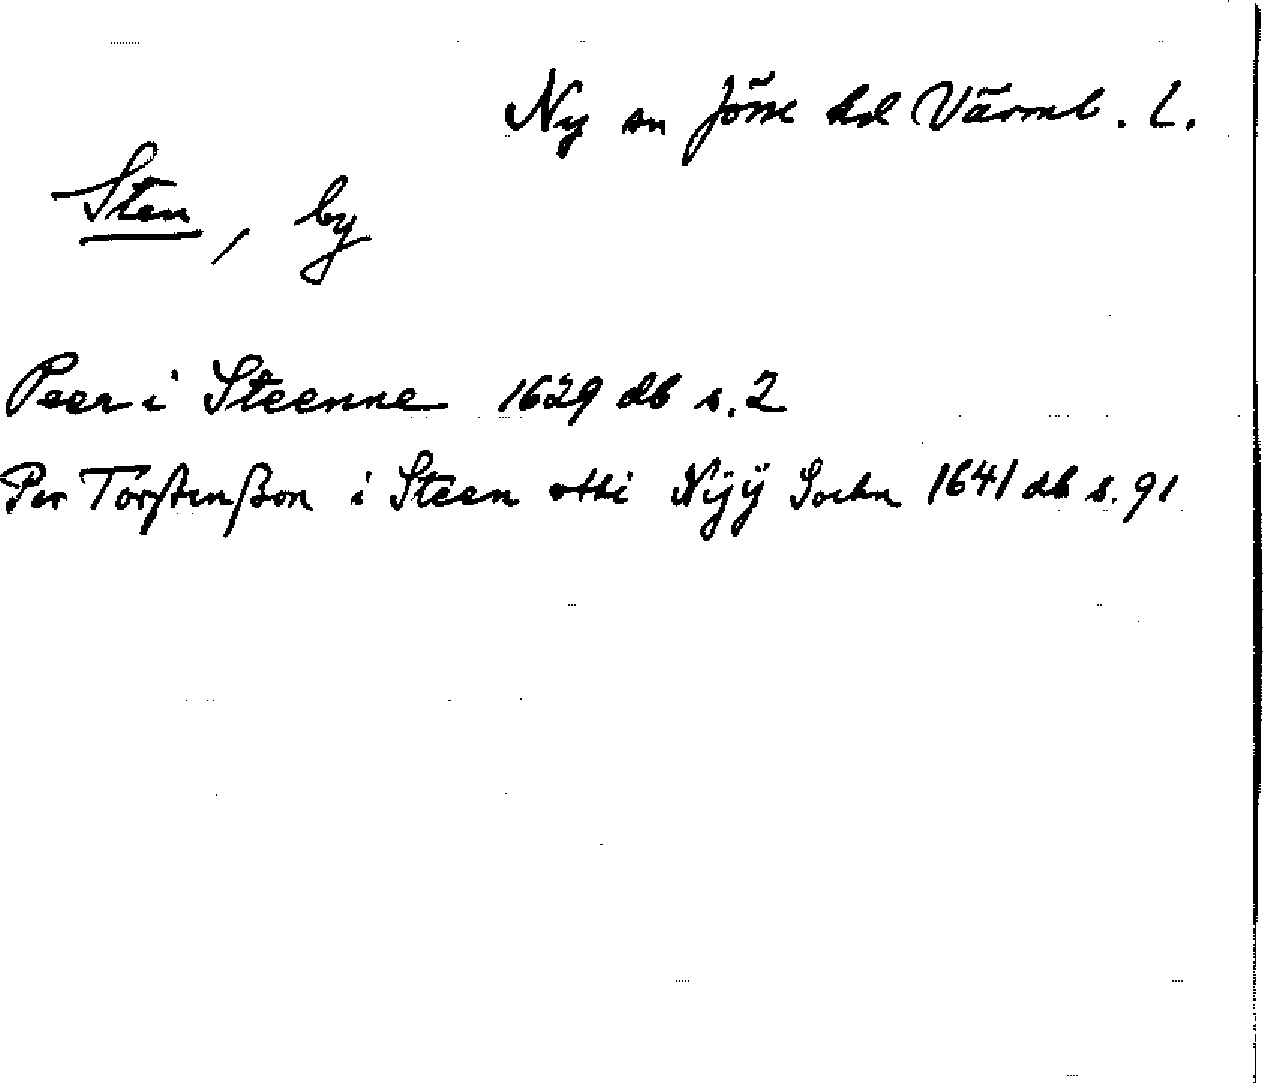 Ny sn Jösse hd Värml. l.
Sten, by
Peer i Steenne 1629 db s. 2
Per Torstenßon i Steen otti Nÿÿ Sochn 1641 db s. 91